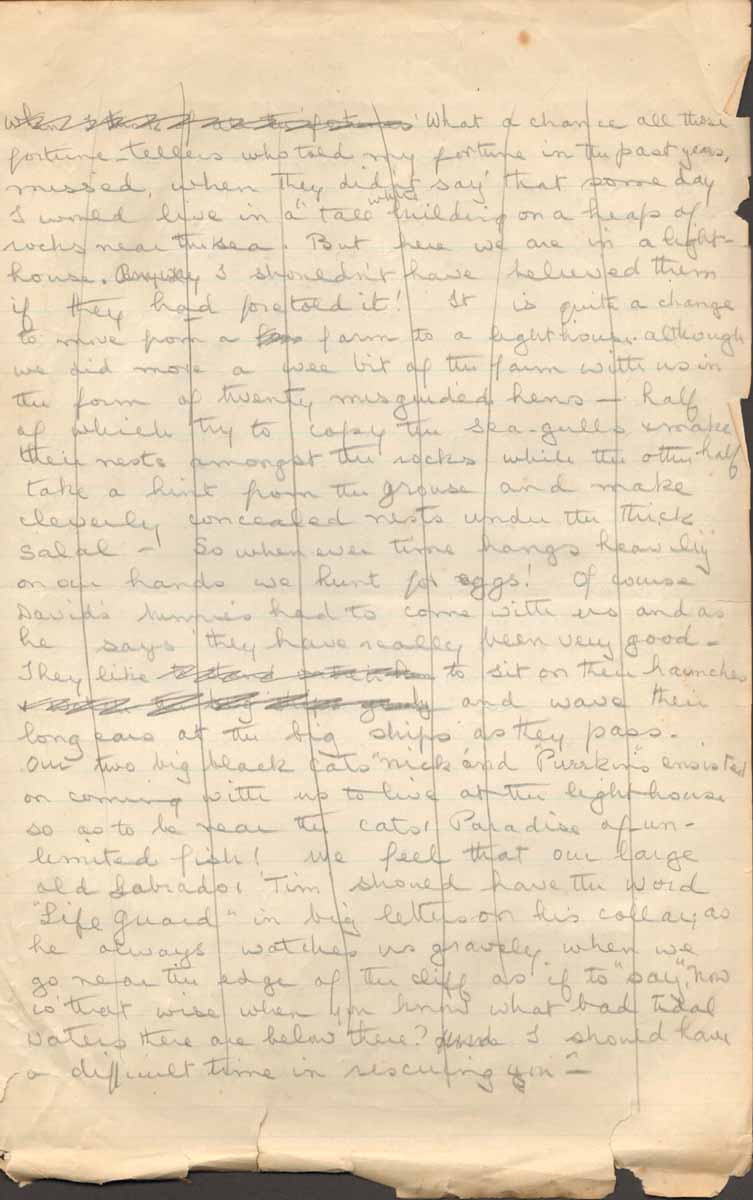 What a chance all those
fortune-tellers who told my fortune in the past years,
missed, when they didn't say that some day
I would live in a "tall white building on a heap of
rocks near the sea. But here we are in a light-
house. Anyway I shouldn't have believed them
if they had foretold it! It is quite a change
to move from a farm to a lighthouse. although
we did move a wee bit of the farm with us in
the form of twenty misguided hens — half
of which try to copy the sea-gulls & make
their nests amongst the rocks while the other half
take a hint from the grouse and make
cleverly concealed nests under the thick
salal — So when ever time hangs heavily
on our hands we hunt for eggs! Of course
David's bunnies had to come with us and as
he says they have really been very good —
They like to sit on their haunches
and wave their
long ears at the big ships as they pass.
Our two big black cats "Nick and "Purrkins" insisted
on coming with us to live at the lighthouse
so as to be near the cats' Paradise of un-
limited fish! We feel that our large
old Labrador 'Tim' should have the word
"Life Guard" in big letters on his collar, as
he always watches us gravely when we
go near the edge of the cliff as if to "say", "now
is that wise when you know what bad tidal
waters there are below there? I should have
a difficult time in rescuing you" —